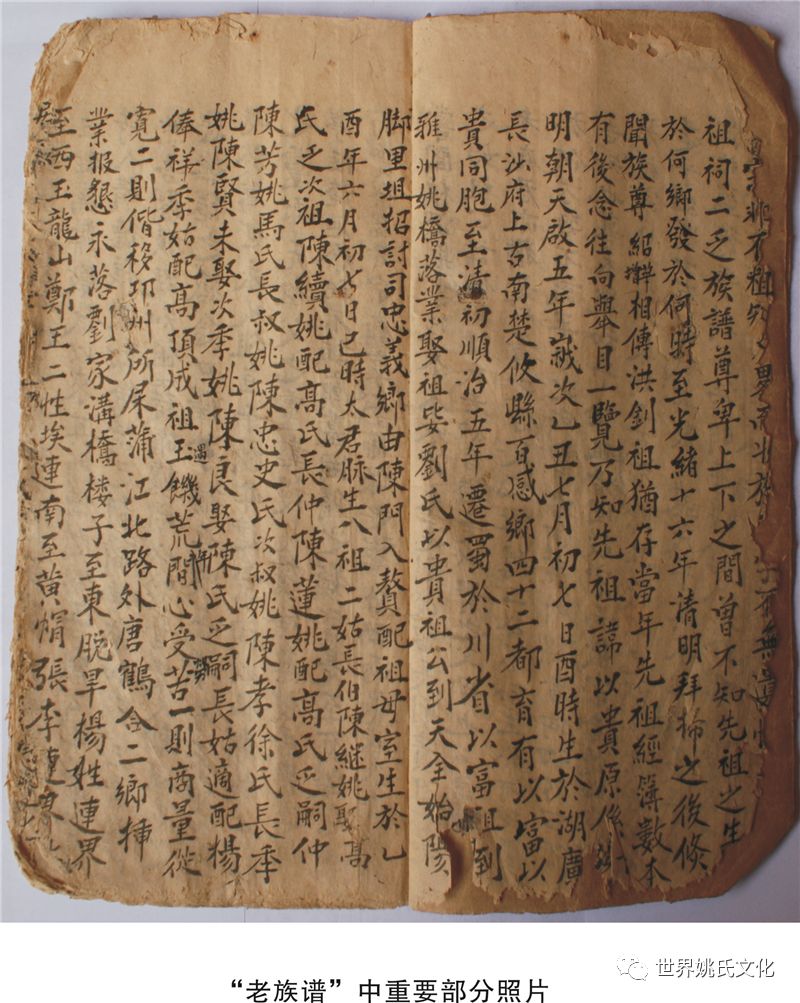 祖祠二乏族譜尊卑上下之間曾不知先祖之生
於何鄉發於何時至光緒十六年清明拜掃之後倏
聞族尊紹祥相傳洪釗祖猶存當年先祖經簿數本
有後念往向舉目一覽乃知先祖諱以貴原係
明朝天啟五年歲次乙丑七月初七日酉時生於湖廣
長沙府上古南楚攸縣百感鄉四十二都育有以富以
貴同胞至清初順治五年遷蜀於川省以富祖到
雅州姚橋落業娶祖妣劉氏以貴祖公到天全始陽
脚里坦招討司忠義鄉由陳門入贅配祖母室生於乙
酉年六月初七日巳時太君脉生八祖二姑長伯陳継姚娶高
氏乏次祖陳續姚配高氏長仲陳蓮姚配高氏乏嗣仲
陳芳姚馬氏長叔姚陳忠史氏次叔姚陳孝徐氏長季
姚陳賢未娶次季姚陳良娶陳氏乏嗣長姑適配楊
俸祥季姑配高頂成祖王遇饑荒間心受苦一則商量從
寬二則偕移邛州所屎蒲江北路外唐鶴合二鄉揷
業报懇永落劉家溝橋楼子至東脫旱楊姓連界
至西玉龍山鄭王二性埃連南至黄㡌張李連界
“老族谱”中重要部分照片
世界姚氏文化